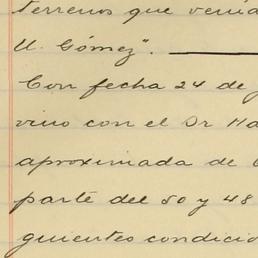 terrenos que
U. Gómez".
Con fecha 24 de
vino con el Dr
aproximada de
parte del 50 y 48
guientes